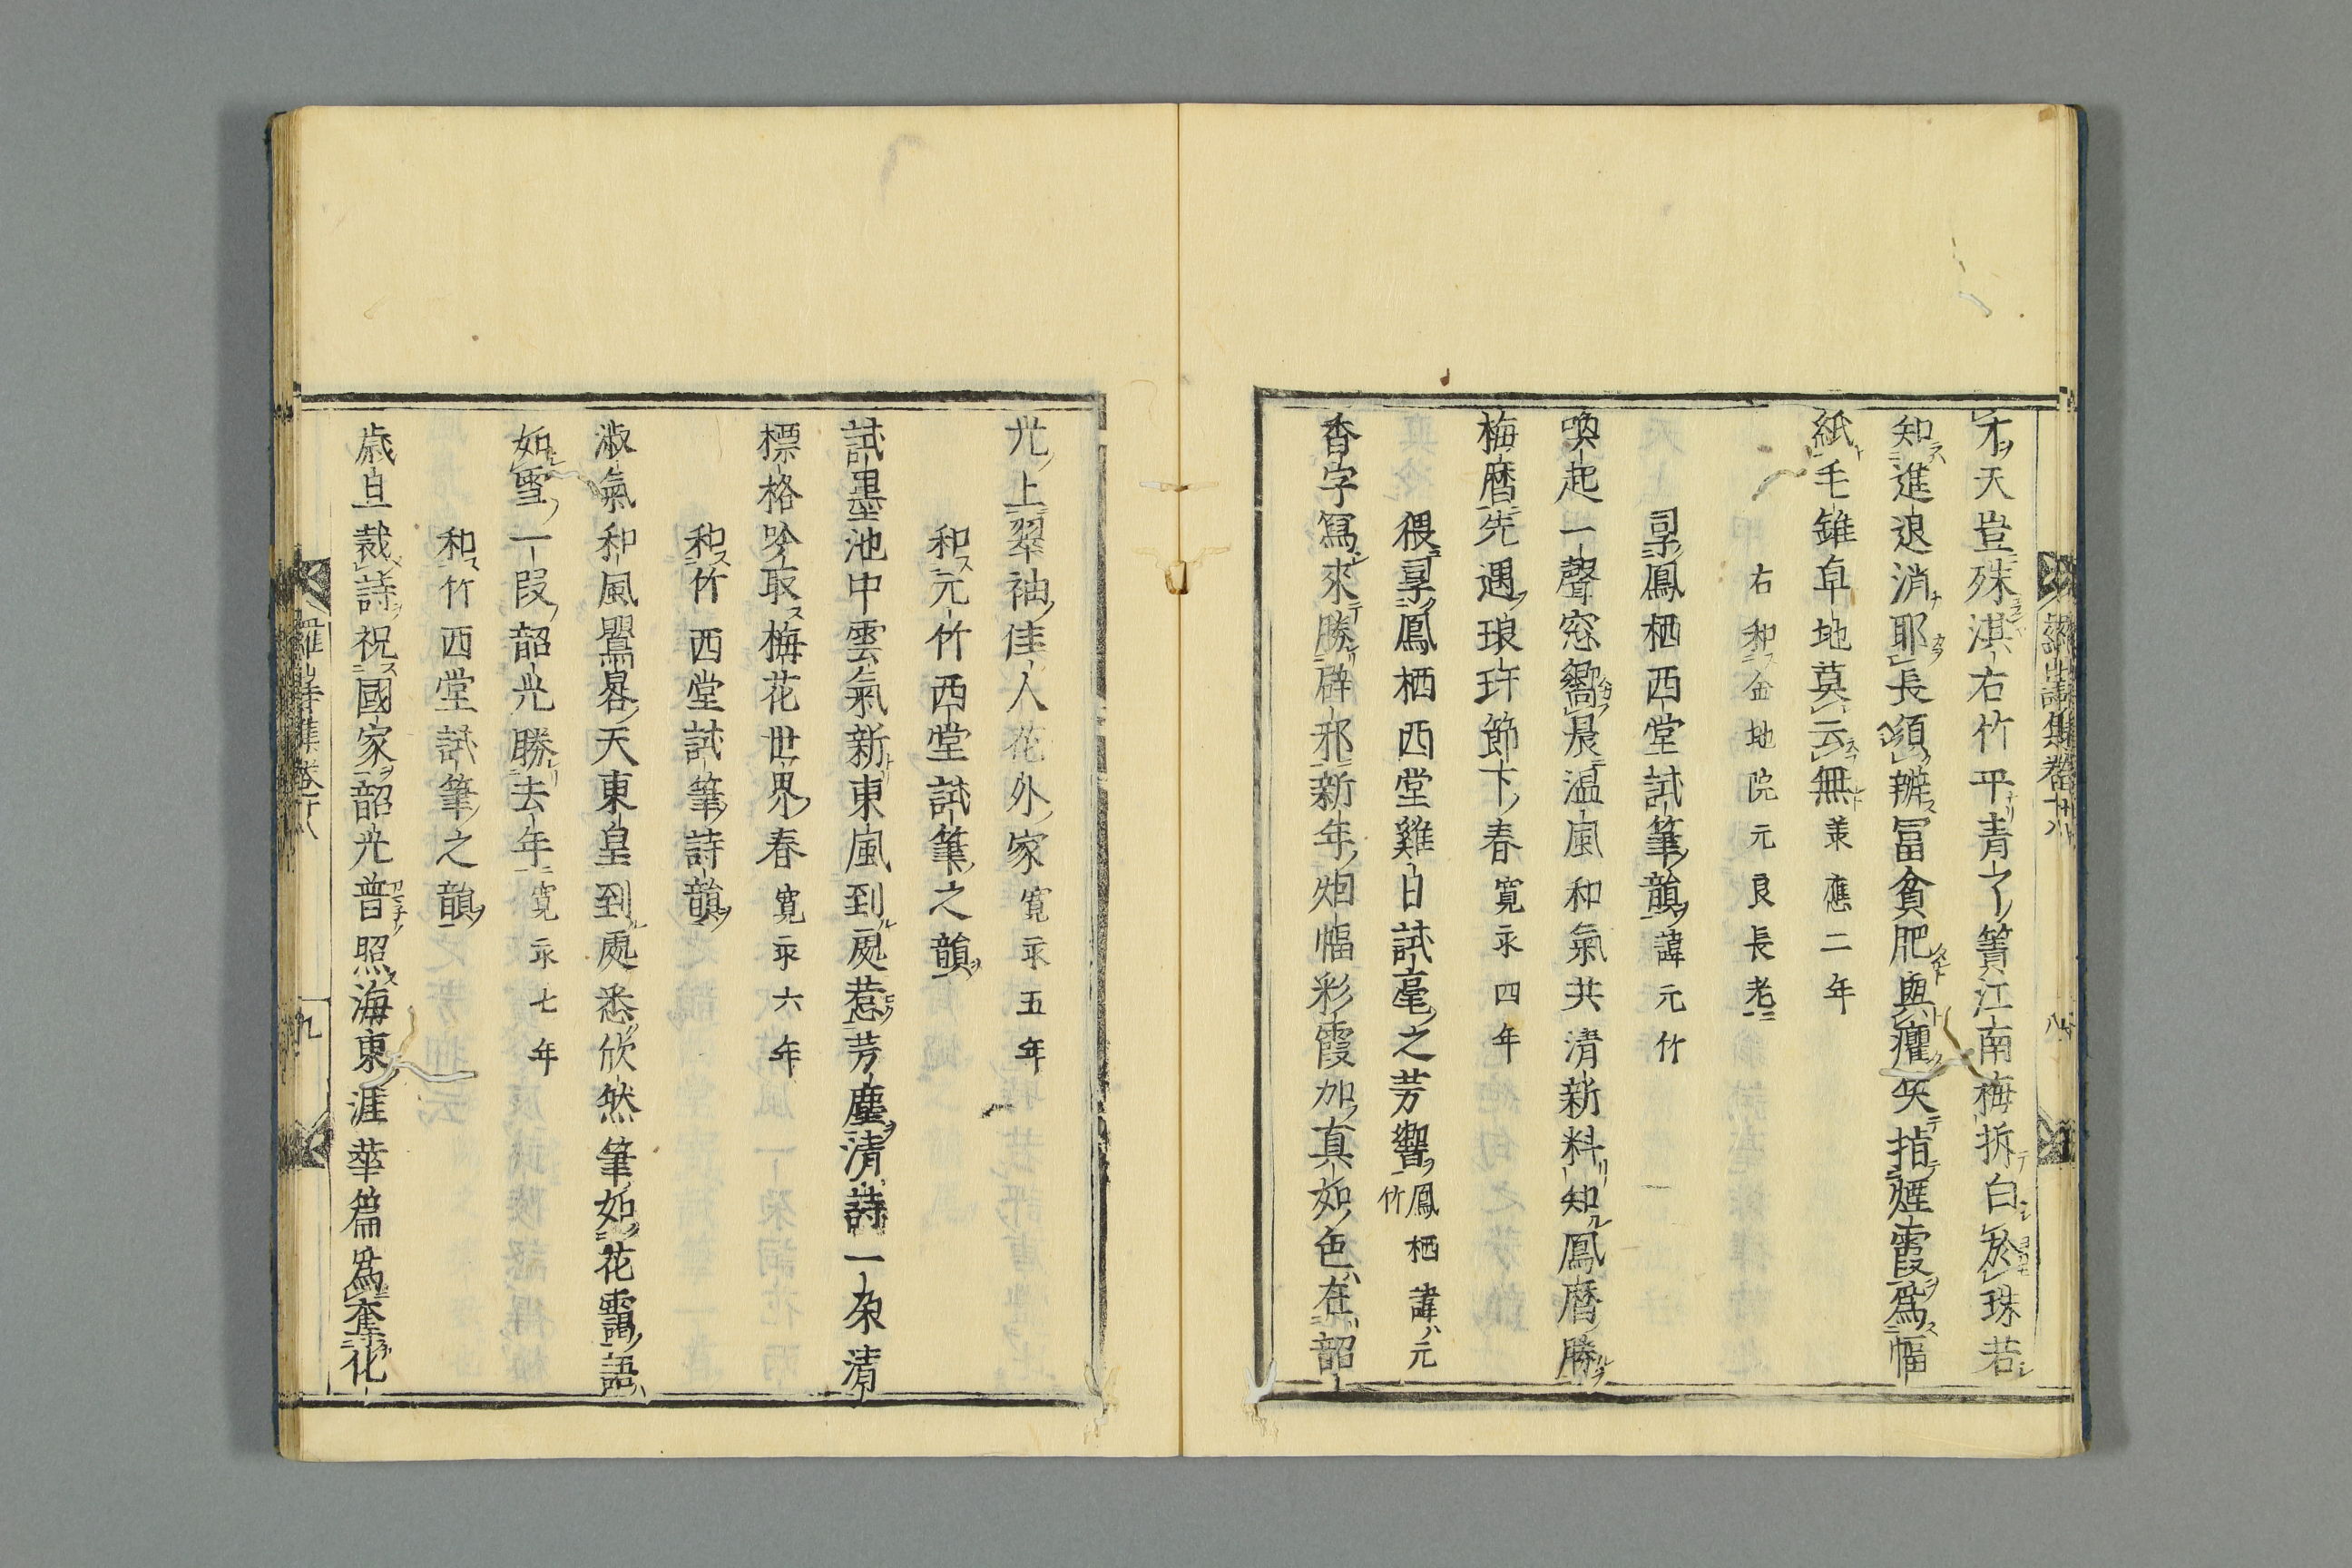 才天豈殊淇右竹平青了篢江南梅拆白於珠若
知進退消耶長須辦冨貧肥與癯矢指煙霞為幅
紙毛錐卓地莫云無 羕應二年
右和金地院元良長老
享鳳栖西堂試筆韻 諱元竹
喚起一聲窓嚮晨温風和氣共清新料知鳳暦勝
梅暦先遇琅玕節下春 寛永四年
猥享鳳栖西堂雞日試毫之芳響 鳳栖諱ハ元竹
香字冩來勝辟邪新年烟幅彩霞加真如色在韶
光上翠袖佳人花外家 寛永五年
和元竹西堂試筆之韻
試墨池中雲氣新東風到處惹芳塵清詩一朶清
標格吟取梅花世界春 寛永六年
和竹西堂試筆詩韻
淑氣和風罨晷天東皇到處悉欣然筆如花靄語
如雪一段韶光勝去年 寛永七年
和竹西堂試筆之韻
歳旦裁詩祝國家韶光普照海東涯華篇爲奪化
羅山詩集卷
九